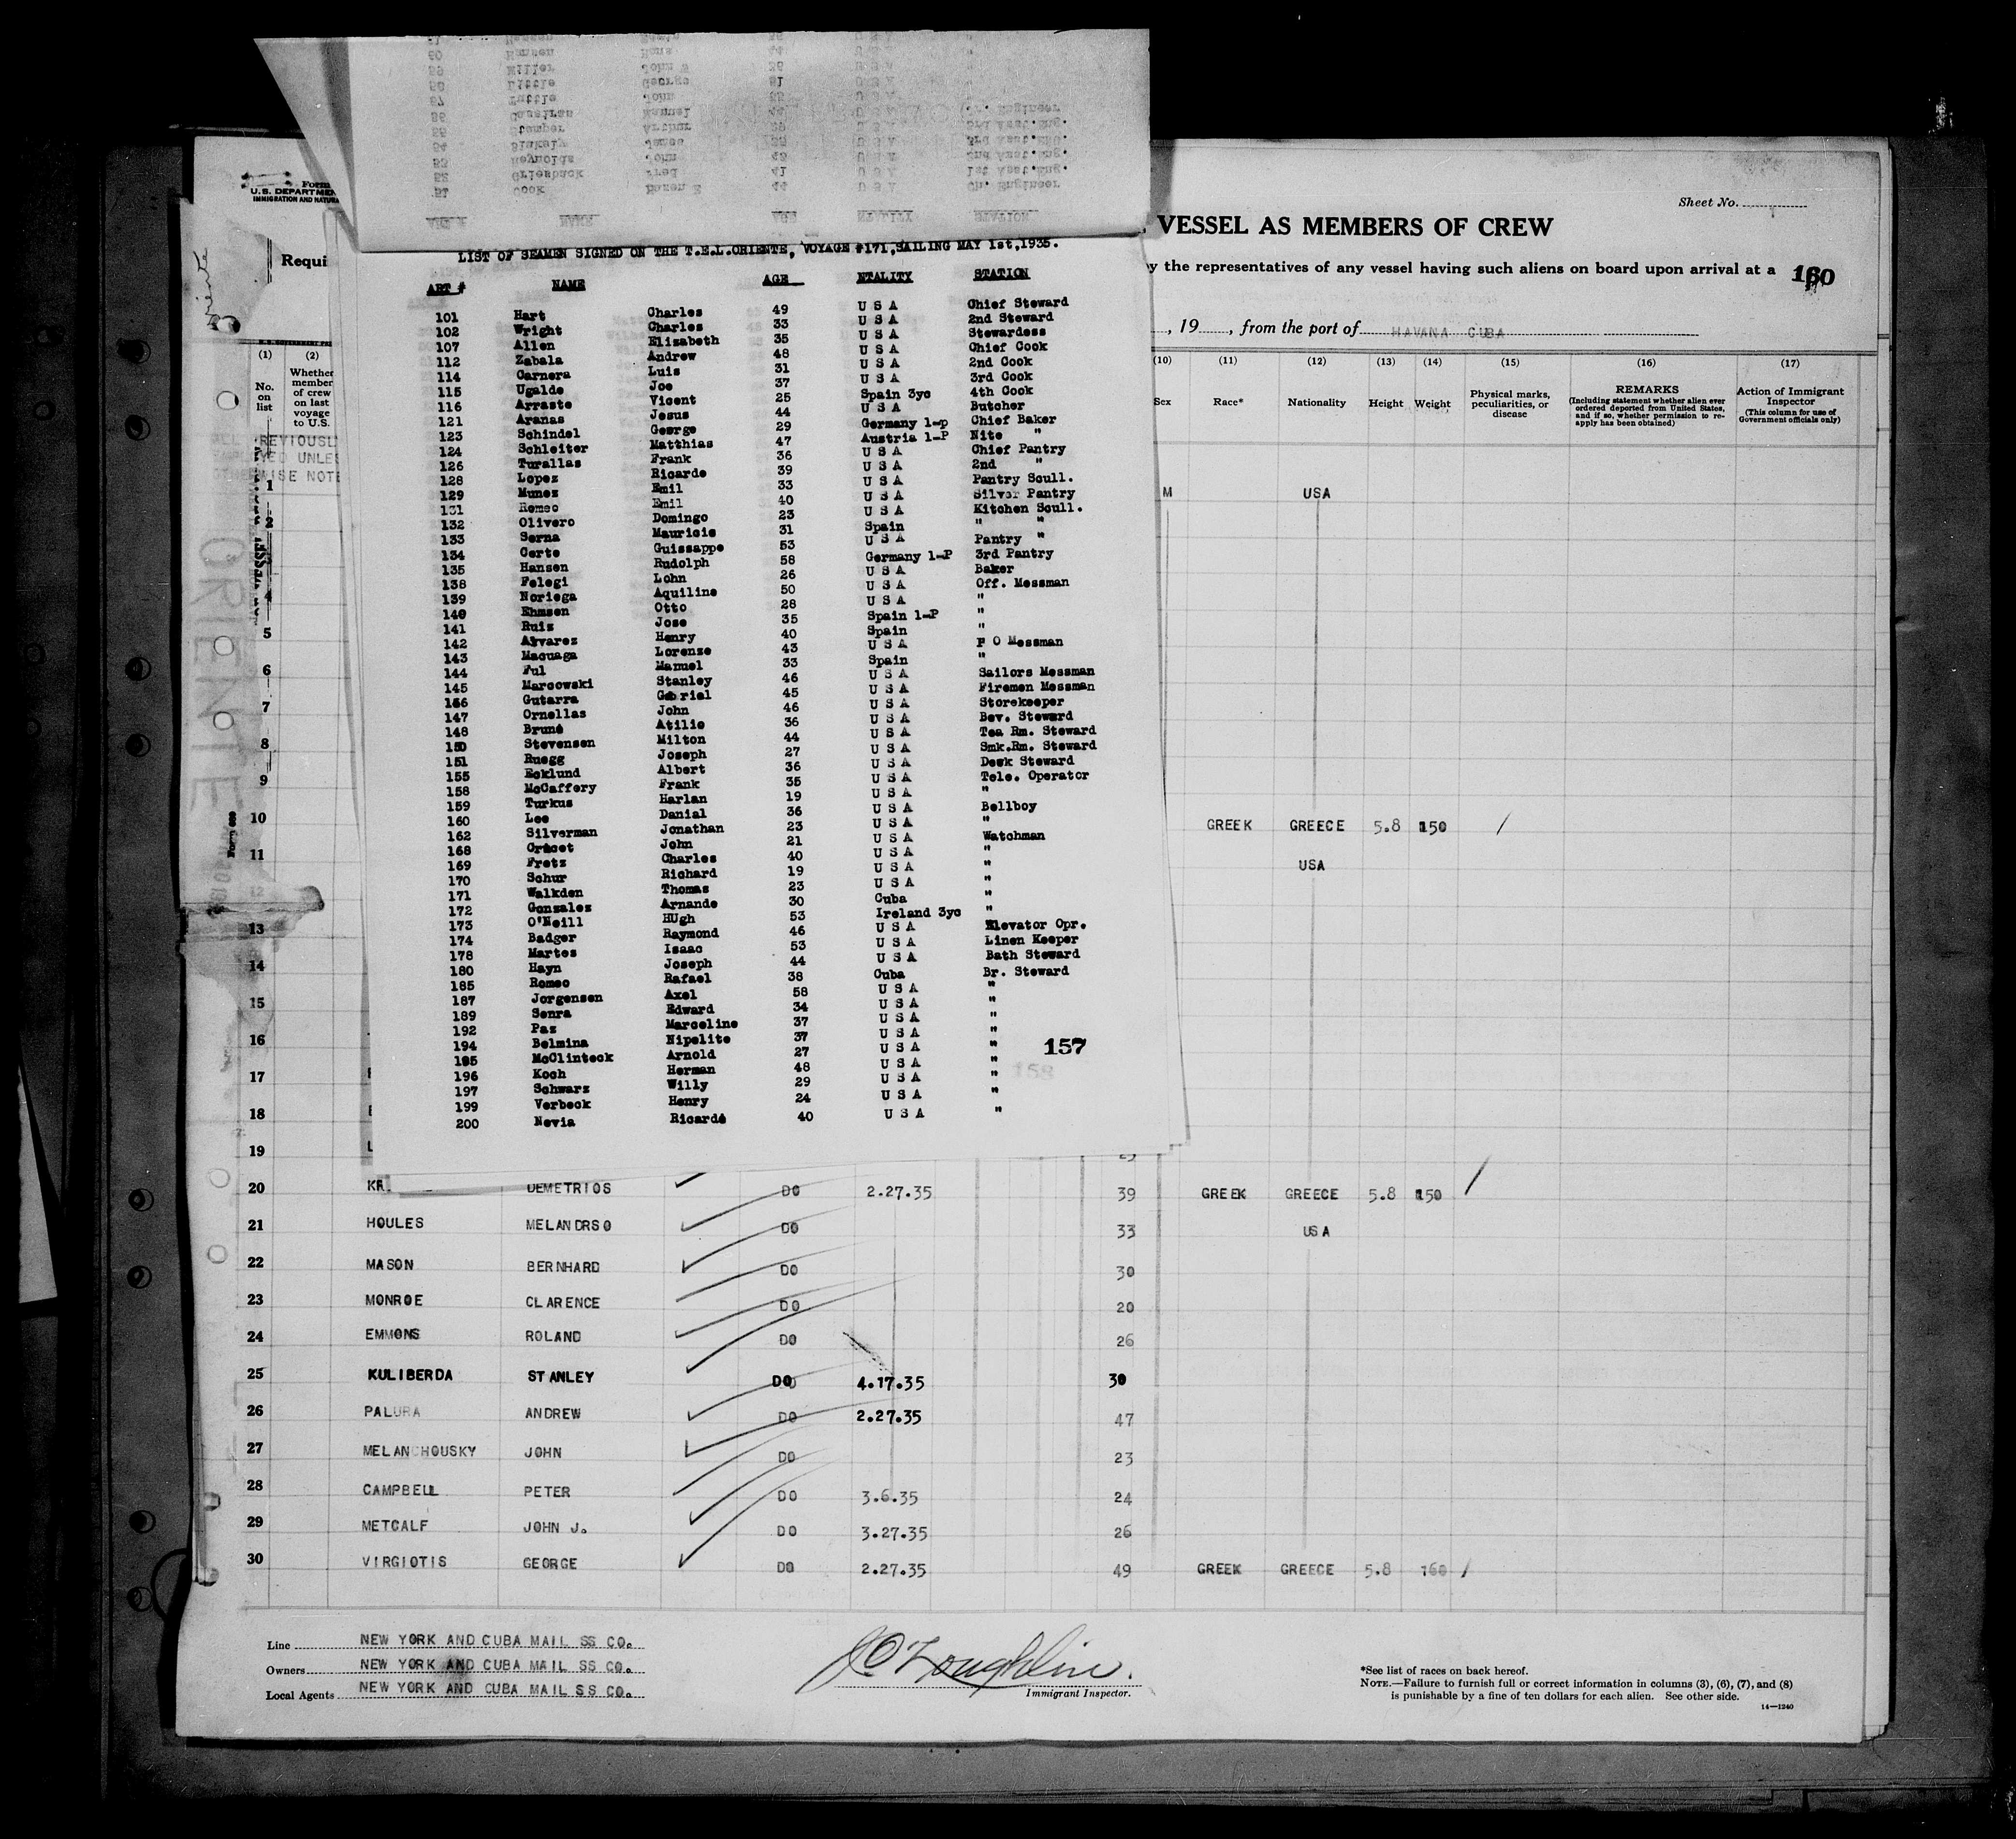 60 Hansen Hans 44 U S A
59 Miller John W 36 U S A
58 Little George 51 U S A
57 Tuttle John 55 U S A
56 Manuel U S A Jr. Engineer
55 Stamper Arthur 29 U S A 3rd Asst.Eng.
54 Blakely James U S A 3rd Asst.Eng.
53 Reynolds John 43 U S A 2nd Asst.Eng.
52 Griesback Fred 41 U S A 1st Asst.Eng.
51 Cook Hazen E 44 U S A Ch. Engineer
ART # NAME AGE NTALITY STATION
LIST OF SEAMEN SIGNED ON THE T.E.L.ORIENTE, VOYAGE #171,SAILING MAY 1st,1935.
ART # NAME AGE NTALITY STATION
101 Hart Charles 49 U S A Chief Steward
102 Wright Charles 33 U S A 2nd Steward
107 Allen Elizabeth 35 U S A Stewardess
112 Zabala Andrew 48 U S A Chief Cook
114 Carnera Luis 31 U S A 2nd Cook
115 Ugalde Joe 37 U S A 3rd Cook
116 Arraste Vicent 25 Spain 3yc 4th Cook
121 Aranas Jesus 44 U S A Butcher
123 Schindel George 29 Germany 1-p Chief Baker
124 Schleiter Matthias 47 Austria 1-P Nite "
126 Turallas Frank 36 U S A Chief Pantry
128 Lopez Ricardo 39 U S A 2nd "
129 Munoz Emil 33 U S A Pantry Scull.
131 Romeo Emil 40 U S A Silver Pantry
132 Olivero Domingo 23 U S A Kitchen Scull.
133 Serna Mauricio 31 Spain " "
134 Certe Guissappe 53 U S A Pantry "
135 Hansen Rudolph 58 Germany 1-P 3rd Pantry
138 Felegi Lohn 26 U S A Baker
139 Noriega Aquiline 50 U S A Off. Messman
140 Ehmsen Otto 28 U S A "
141 Ruiz Jose 35 Spain 1-P "
142 Alvarez Henry 40 Spain "
143 Macuaga Lorenzo 43 U S A P O Messman
144 Ful Manuel 33 Spain "
145 Marcowski Stanley 46 U S A Sailors Messman
146 Gutarra Gabriel 45 U S A Firemen Messman
147 Ornellas John 46 U S A Storekeeper
148 Bruné Atilio 36 U S A Bev. Steward
150 Stevensen Milton 44 U S A Tea Rm. Steward
151 Ruegg Joseph 27 U S A Smk.Rm. Steward
155 Ecklund Albert 36 U S A Deck Steward
158 McCaffery Frank 35 U S A Tele. Operator
159 Turkus Harlan 19 U S A "
160 Lee Danial 36 U S A Bellboy
162 Silverman Jonathan 23 U S A "
168 Gracet John 21 U S A Watchman
169 Fretz Charles 40 U S A "
170 Schur Richard 19 U S A "
171 Walkden Thomas 23 U S A "
172 Gonzales Arnando 30 Cuba "
173 O'Neill HUgh 53 Ireland 3yc "
174 Badger Raymond 46 U S A Elevator Opr.
178 Martes Isaac 53 U S A Linen Keeper
180 Hayn Joseph 44 U S A Bath Steward
185 Romeo Rafael 38 Cuba Br. Steward
187 Jorgensen Axel 58 U S A "
189 Senra Edward 34 U S A "
192 Paz Marceline 37 U S A "
194 Belmina Nipolite 37 U S A "
195 McClintock Arnold 27 U S A "
196 Koch Herman 48 U S A "
197 Schwarz Willy 29 U S A "
199 Verbeck Henry 24 U S A "
200 Nevia Ricardo 40 U S A "
157
158
Form
U.S. DEPARTME
IMMIGRATION AND NATURA
Sheet No.
VESSEL AS MEMBERS OF CREW
Requi
y the representatives of any vessel having such aliens on board upon arrival at a
160
, 19 , from the port of HAVANA CUBA
Oriente
ORIENTE
(1) (2) (10) (11) (12) (13) (14) (15) (16) (17)
No. on list
Whether member of crew on last voyage to U.S.
Sex
Race*
Nationality
Height
Weight
Physical marks, peculiarities, or disease
REMARKS
(Including statement whether alien ever ordered deported from United States, and if so, whether permission to reapply has been obtained)
Action of Immigrant Inspector
(This column for use of Government officials only)
REVIOUSL
YED UNLE
WISE NOT
1 M USA
2
4
5
6
7
8
9
10 GREEK GREECE 5.8 150 /
11 USA
12
13
14
15
16
17
18
19
20 KR DEMETRIOS DO 2.27.35 39 GREEK GREECE 5.8 150 /
21 HOULES MELANDRSO DO 33 USA
22 MASON BERNHARD DO 30
23 MONROE CLARENCE DO 20
24 EMMONS ROLAND DO 26
25 KULIBERDA STANLEY DO 4.17.35 30
26 PALURA ANDREW DO 2.27.35 47
27 MELANCHOUSKY JOHN DO 23
28 CAMPBELL PETER DO 3.6.35 24
29 METCALF JOHN J. DO 3.27.35 26
30 VIRGIOTIS GEORGE DO 2.27.35 49 GREEK GREECE 5.8 160 /
Line NEW YORK AND CUBA MAIL SS CO.
Owners NEW YORK AND CUBA MAIL SS CO.
Local Agents NEW YORK AND CUBA MAIL SS CO.
J O'Loughlin.
Immigrant Inspector.
*See list of races on back hereof.
NOTE.—Failure to furnish full or correct information in columns (3), (6), (7), and (8)
is punishable by a fine of ten dollars for each alien. See other side.
14—1240